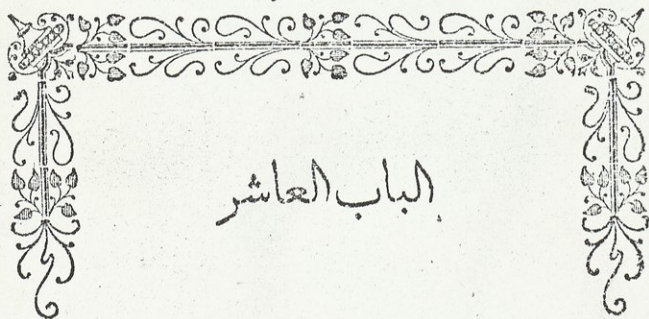 الباب العاشر